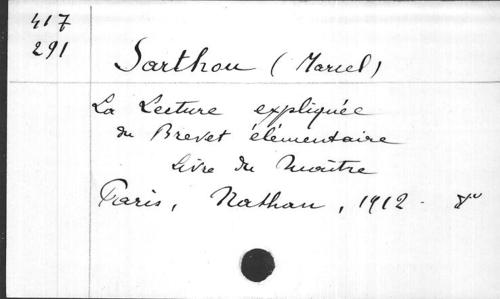 417
291
Sarthou (Marcel)
La Lecture expliquée
du Brevet élémentaire
Livre du Maître
Paris, Nathan, 1912. 8º